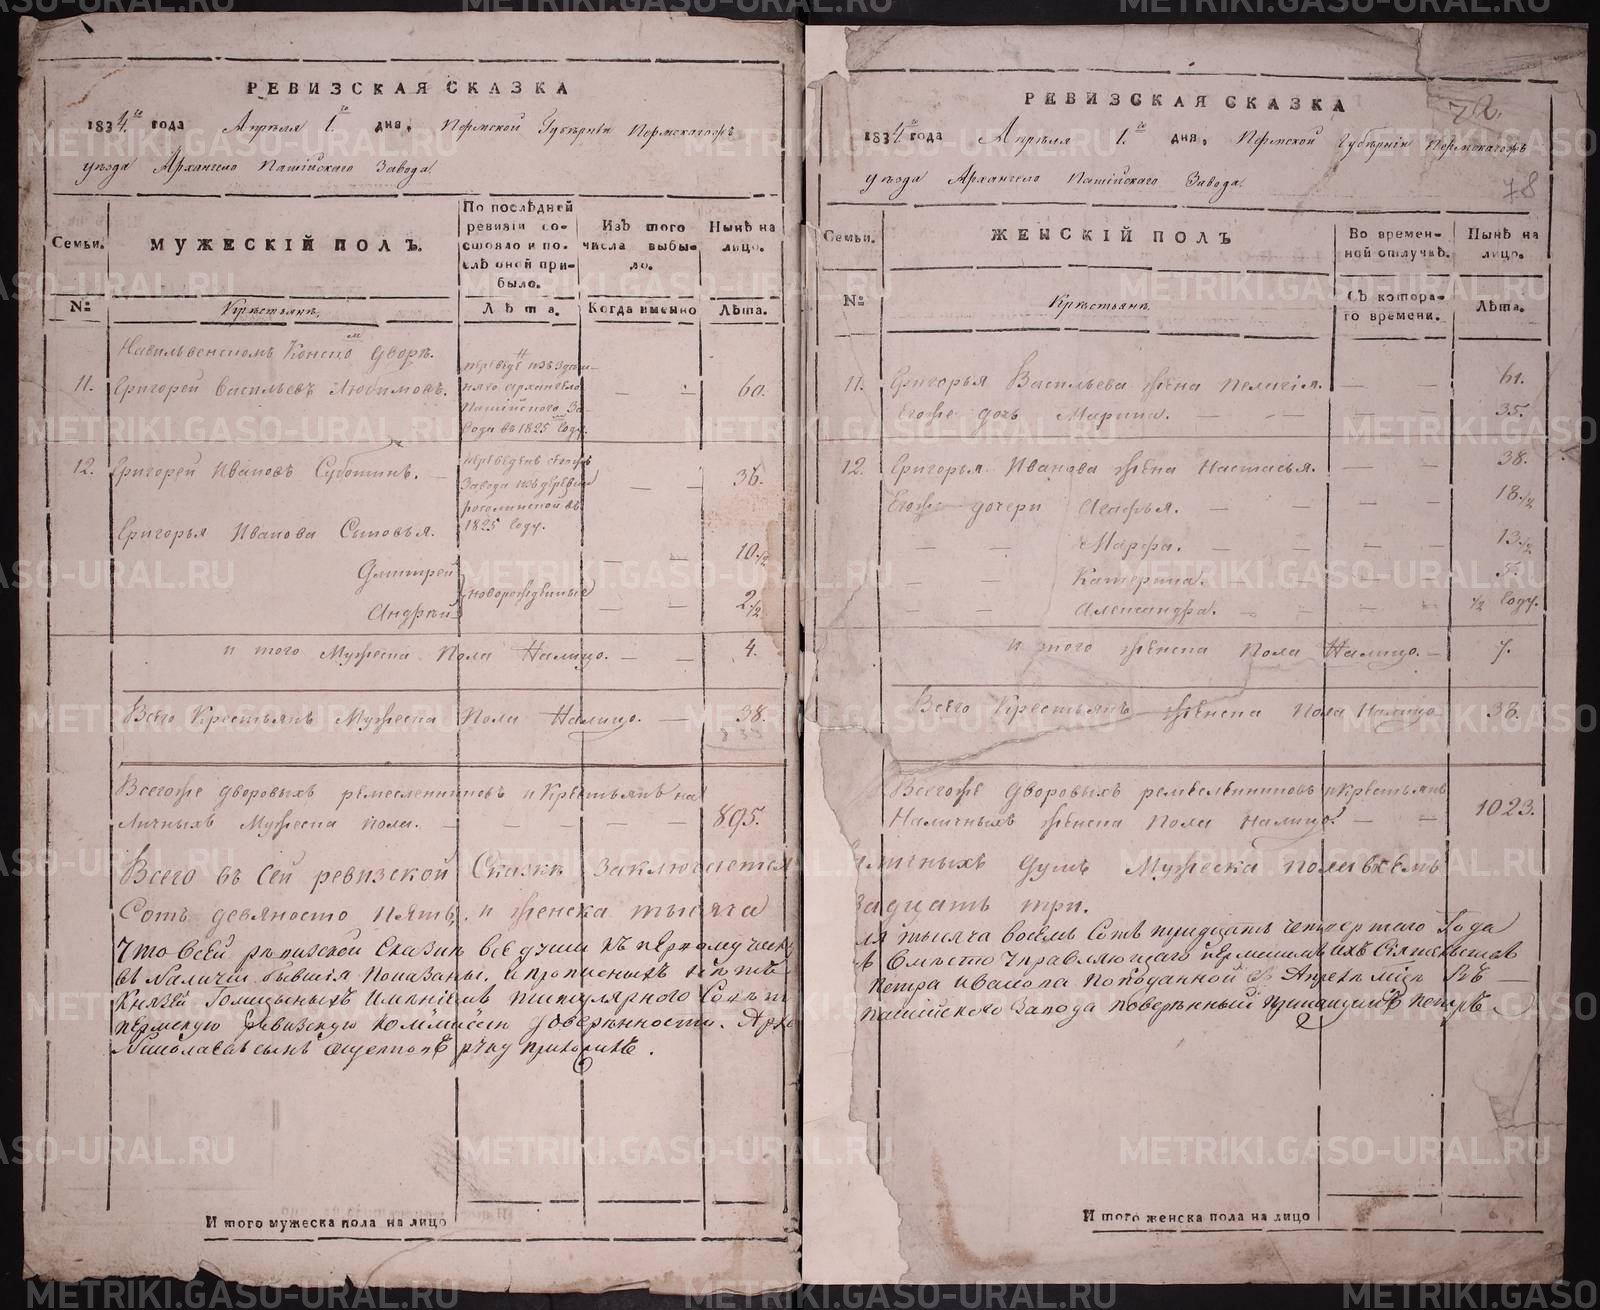 РЕВИЗСКАЯ СКАЗКА
1834го года Апреля 1го дня, Пермской Губерніи Пермскагожъ
уѣзда Архангело Пашійскаго Завода.
Семьи.
МУЖЕСКІЙ ПОЛЪ.
По послѣдней ревизіи состояло и послѣ оной прибыло.
Изъ того числа выбыло.
Нынѣ на лицо.
№
Крестьянъ.
Лѣта.
Когда именно
Лѣта.
Конно дворѣ.
11. Григорей Васильевъ Любимовъ. — — 60.
Архангело Пашійского Завода въ 1825 году.
12. Григорей Ивановъ Суботинъ. — — — 36.
переведенъ
Завода изъ деревни
въ 1825 году.
Григорья Иванова Сыновья.
Дмитрей — — 10 1/2
новорожденные
Андрей — — 2 1/2
и того Мужеска Пола Налицо. — — 4.
Всего Крестьянъ Мужеска Пола Налицо. — 38.
Всегоже дворовыхъ ремесленниковъ и Крестьянъ на
личныхъ Мужеска пола. — — — — — 895.
Всего въ Сей ревизской Сказкѣ Заключается
Сотъ девяносто пять, и женска тысяча
Что всей ревизской Сказки все души къ первому числу
въ Наличіи бывшія показаны. и прописныхъ нѣтъ
Князей Голицыныхъ Имѣніемъ титулярного Совѣт
пермскую ревизскую коммисію доверенности. Арха
руку приложилъ.
И того мужеска пола на лицо
РЕВИЗСКАЯ СКАЗКА
78
1834го года Апреля 1го дня, Пермской Губерніи Пермскагожъ
уѣзда Архангело Пашійскаго Завода.
Семьи.
ЖЕНСКІЙ ПОЛЪ
Во временной отлучкѣ.
Нынѣ на лицо.
№
Крестьянъ.
Съ котораго времени.
Лѣта.
11. Григорья Васильева жена Пелагія. — — 61.
Егоже дочь Марина. — — — — 35.
12. Григорья Иванова жена Настасья. — — 38.
Егоже дочери Агафья. — — — — 18 1/2
— — Марфа. — — — — 13 1/2
— — Катерина. — — — — 5.
— — Александра. — — — — 1/2 году.
и того женска Пола Налицо. — 7.
Всего Крестьянъ женска Пола Налицо 38.
Всегоже дворовыхъ ремесленниковъ и Крестьянъ
Наличныхъ женска Пола Налицо. — — 1023.
личныхъ душъ Мужеска пола восемь
задцать три.
ля тысяча восемь Сотъ тридцать четвертаго Года
Вместо Управляющаго Пермскимъ
Петра Иванова
Пашійского Завода поверенный
И того женска пола на лицо
METRIKI.GASO-URAL.RU